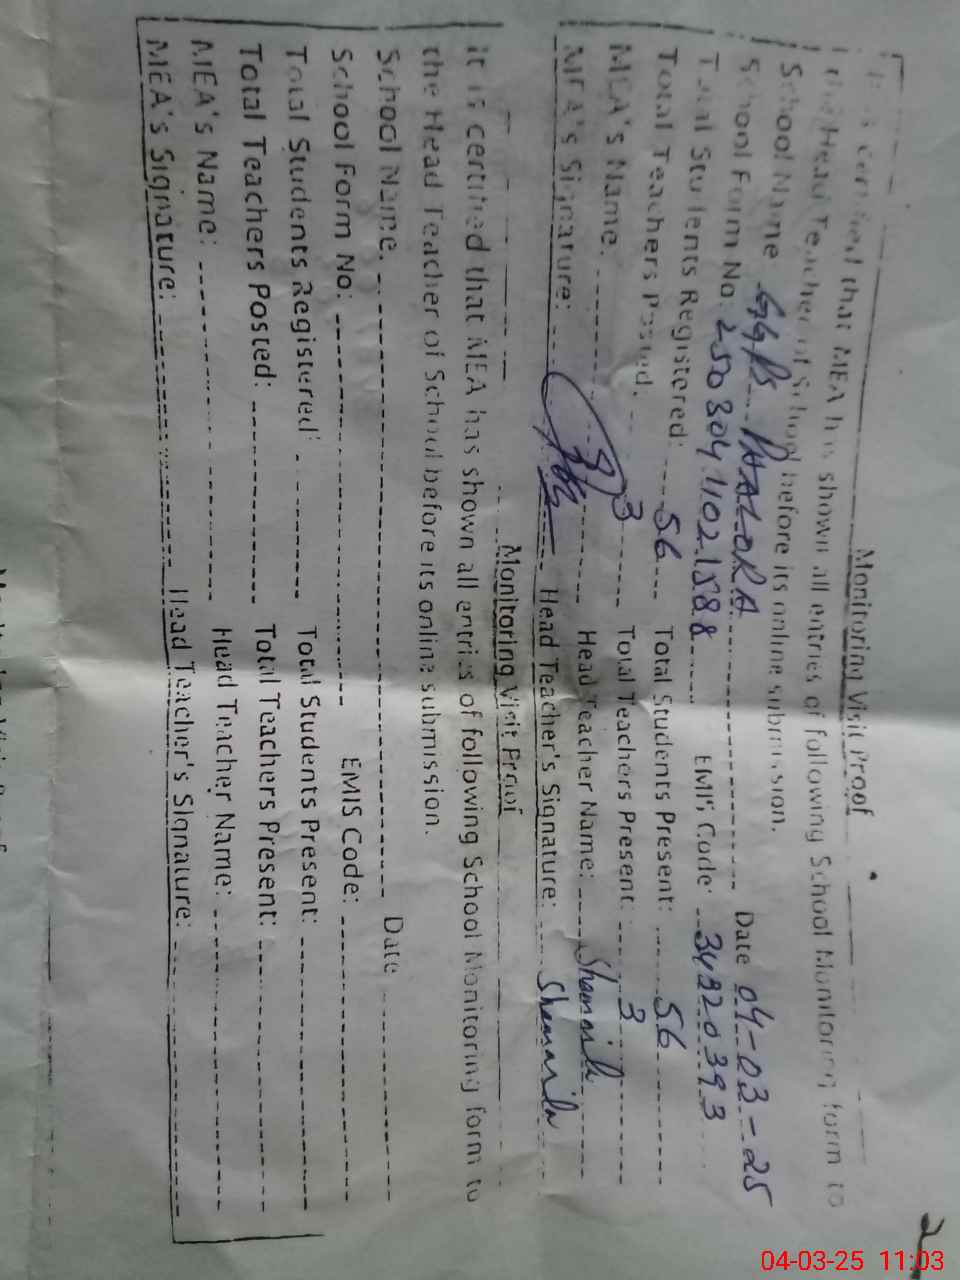 Monitoring Visit Proof
certified that MEA has shown all entries of following School Monitoring form to
the Head Teacher of School before its online submission.
School Name: GGPS Date 04-03-25
School Form No: EMIS Code: 34220393
Total Students Registered: 56 Total Students Present: 56
Total Teachers Posted: 3 Total Teachers Present: 3
MEA's Name: Head Teacher Name: Shamaila
MEA's Signature: Head Teacher's Signature: Shamaila
Monitoring Visit Proof
it is certified that MEA has shown all entries of following School Monitoring form to
the Head Teacher of School before its online submission.
School Name: Date
School Form No: EMIS Code:
Total Students Registered: Total Students Present:
Total Teachers Posted: Total Teachers Present:
MEA's Name: Head Teacher Name:
MEA's Signature: Head Teacher's Signature:
2
04-03-25 11:03